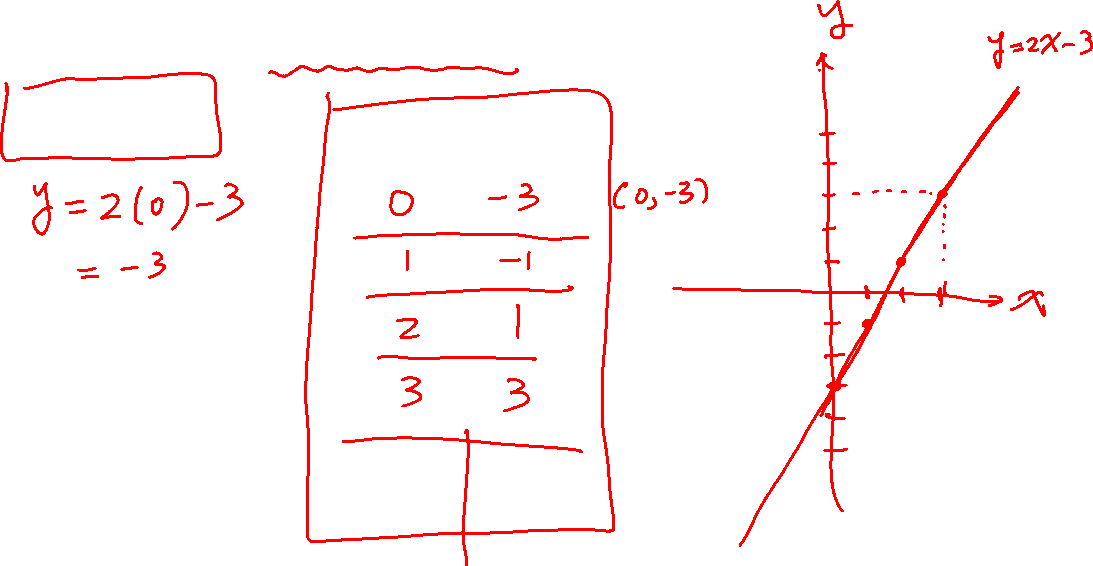 y = 2(0)-3
= -3
0 -3 (0,-3)
1 -1
2 1
3 3
y
y=2x-3
x